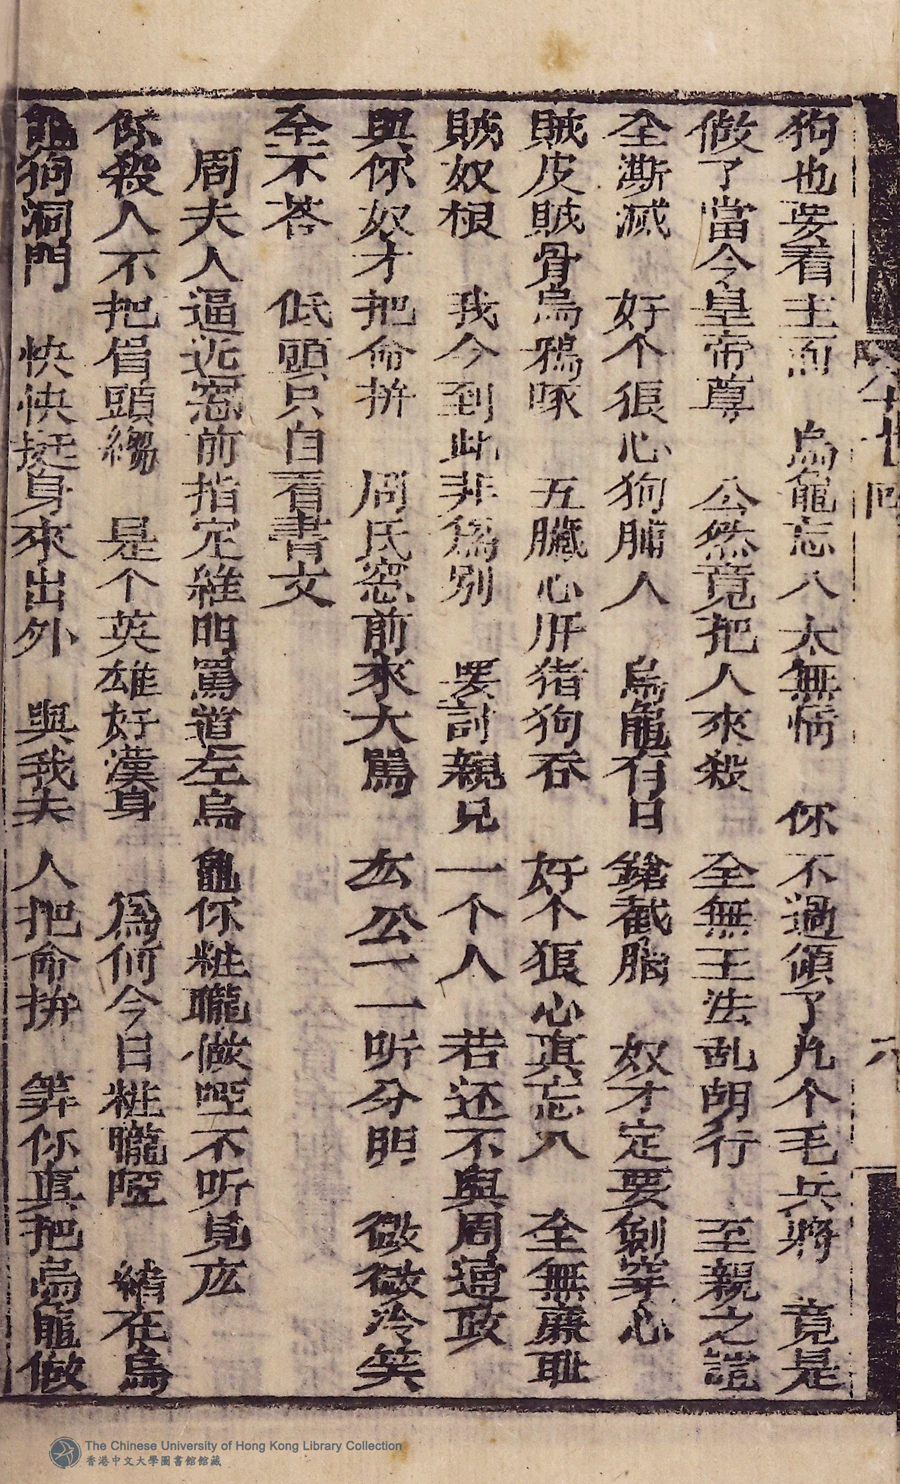 狗也要看主面　烏龜忘八太無情　你不過領了九个毛兵將　竟是
做了當今皇帝尊　公然竟把人來殺　全無王法乱胡行　至親之誼
全澌滅　好个狠心狗脯人　烏龜有日鎗截腦　奴才定要劍穿心
賊皮賊骨烏鴉啄　五臟心肝猪狗吞　好个狠心真忘八　全無廉耻
賊奴根　我今到此非為別　要討親兄一个人　若还不與周通政
與你奴才把命拚　周氏窓前來大罵　左公一一听分明　微微冷笑
全不荅　低頭只自看書文
周夫人逼近窓前指定維明罵道左烏龜你粧聾做啞不听見庅
你殺人不把眉頭縐　是个英雄好漢身　為何今日粧聾啞　縮在烏
龜狗洞門　快快挺身來出外　與我夫人把命拚　筭你真把烏龜做
六
The Chinese University of Hong Kong Library Collection
香港中文大學圖書館館藏